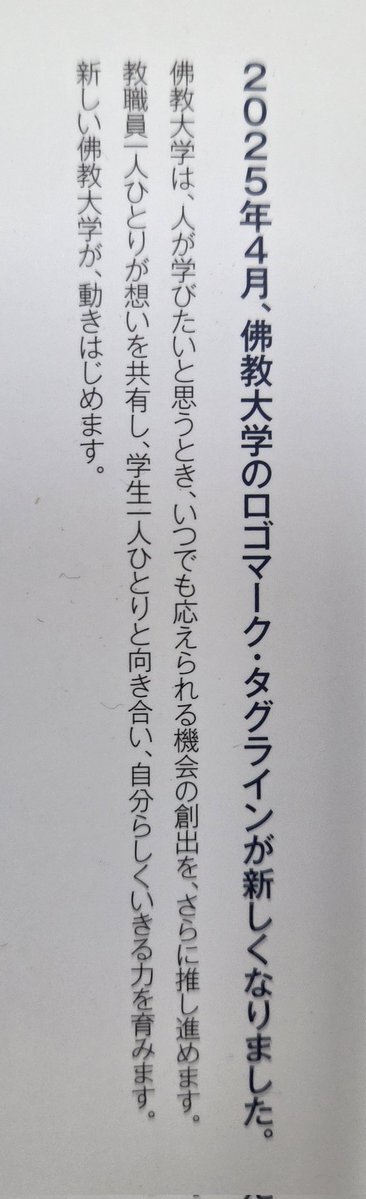 2025年4月、佛教大学のロゴマーク・タグラインが新しくなりました。
佛教大学は、人が学びたいと思うとき、いつでも応えられる機会の創出を、さらに推し進めます。
教職員一人ひとりが想いを共有し、学生一人ひとりと向き合い、自分らしくいきる力を育みます。
新しい佛教大学が、動きはじめます。